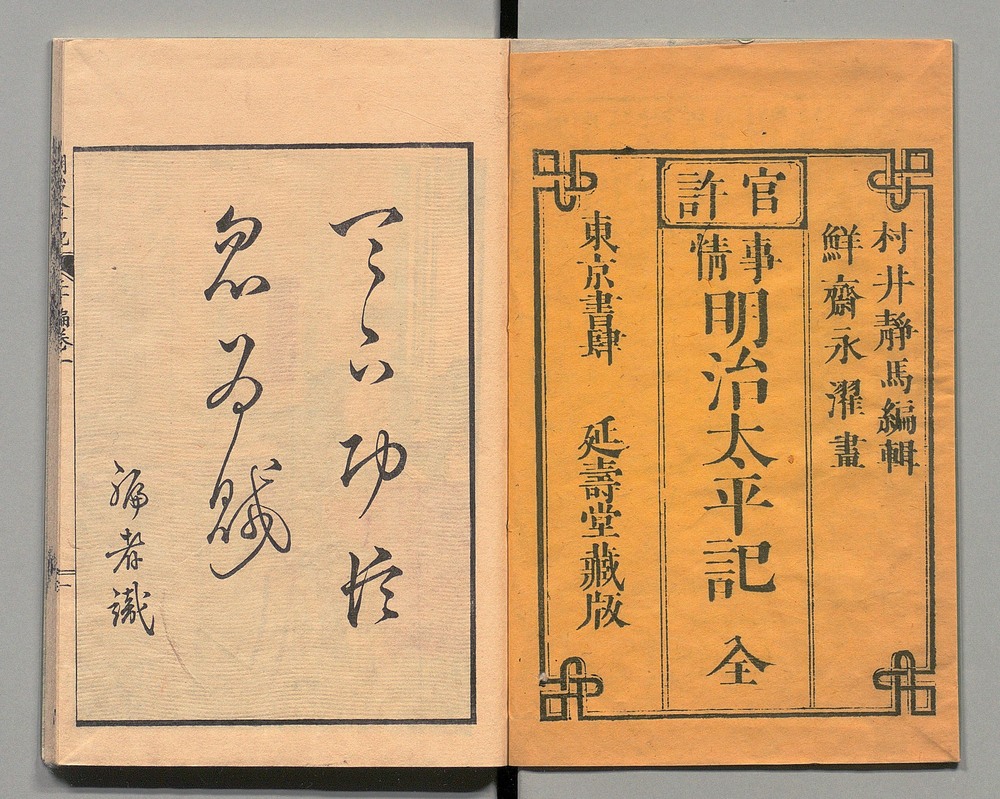 村井靜馬編輯
鮮齋永濯畫
官許
事情
明治太平記 全
東京書肆 延壽堂藏版
功
忽為賊
編者識
編卷一